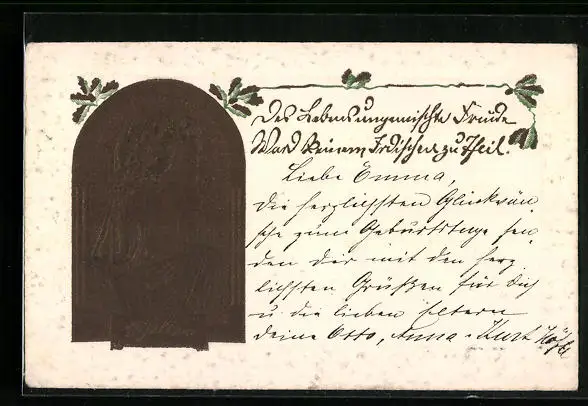 Des Lebens ungemischte Freude
Ward keinem Irdischen zu Theil.
Liebe Emma,
die herzlichsten Glückwün
sche zum Geburtstage sen
den dir mit den herz
lichsten Grüßen für dich
u. die lieben Eltern
deine Otto, Anna - Kurt